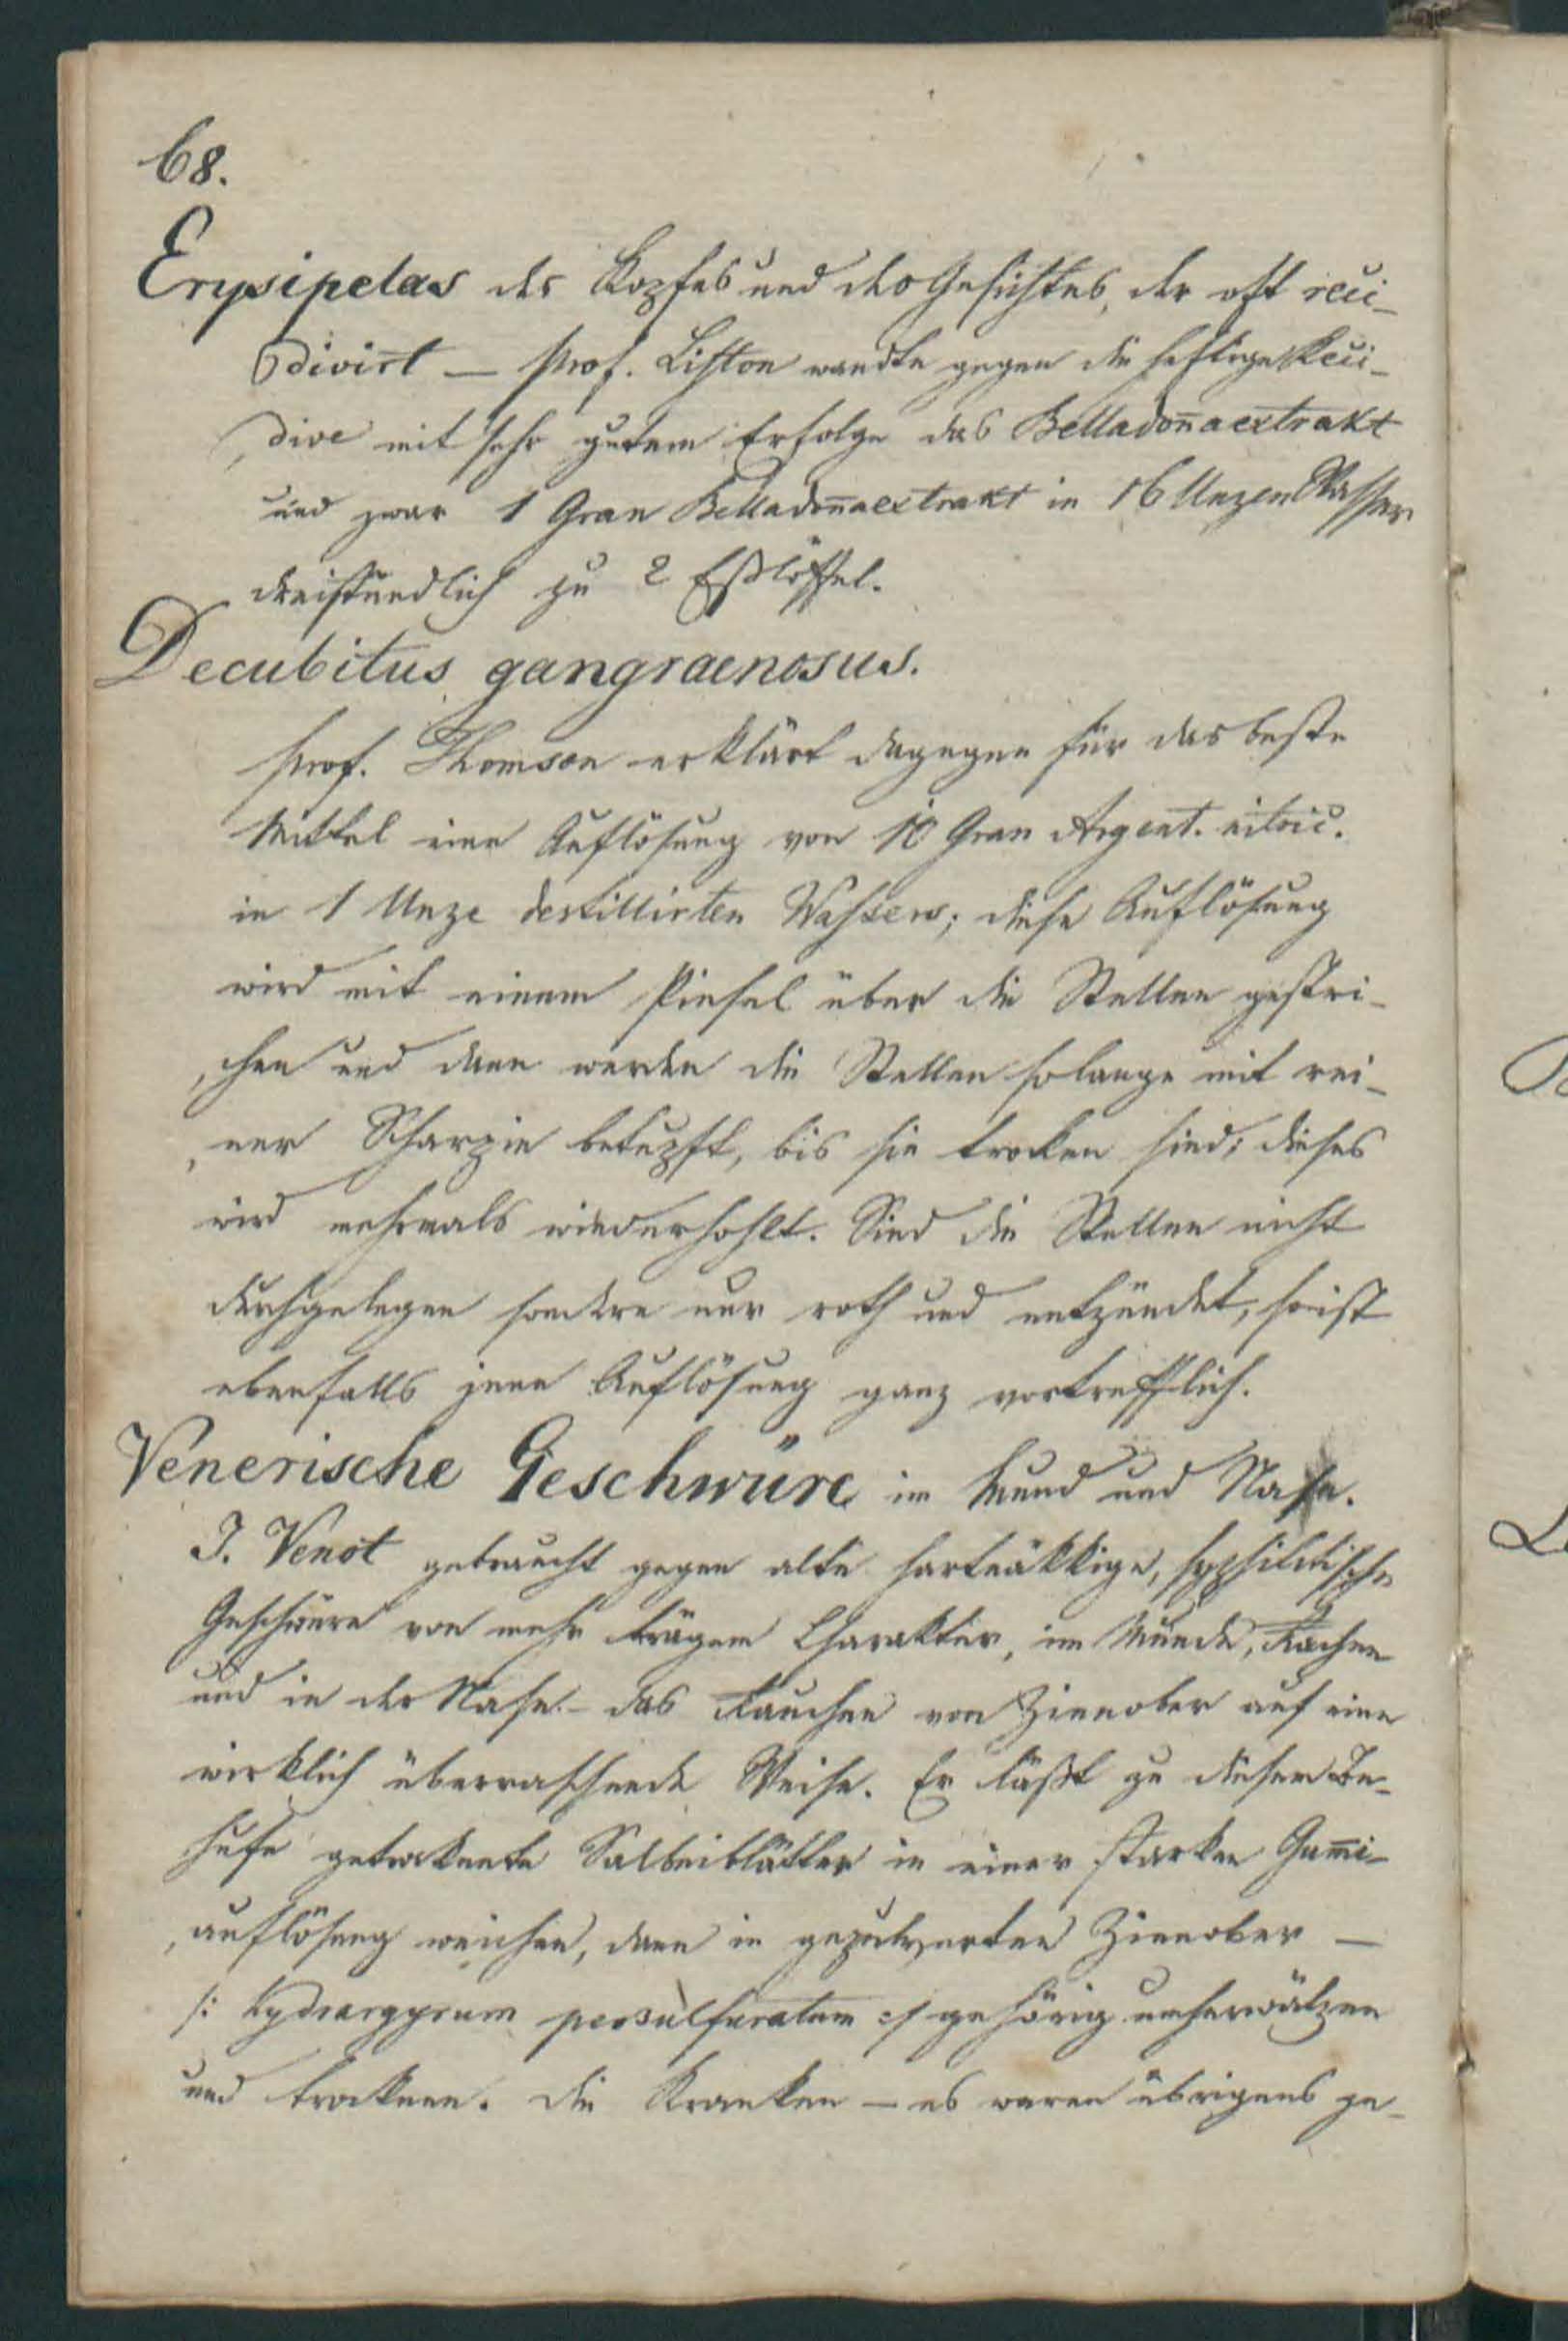 68.
Erysipelas des Kopfes und des Gesichtes, der oft reci-
divirt — Prof. Liston wandte gegen die heftige Reci-
dive mit sehr gutem Erfolge das Belladon̄aextrakt
und zwar 1 Gran Belladon̄aextrakt in 16 Unzen Wasser
dreistündlich zu 2 Eßlöffel.
Decubitus gangraenosus.
Prof. Thomson erklärt dagegen für das beste
Mittel eine Auflösung von 10 Gran Argent. nitric.
in 1 Unze destillirten Wassers; diese Auflösung
wird mit einem Pinsel über die Stellen gestri-
chen und dann werden die Stellen solange mit rei-
ner Scharpie betupft, bis sie trocken sind; dieses
wird mehrmals wiederhohlt. Sind die Stellen nicht
durchgelegen sondern nur roth und entzündet, so ist
ebenfalls jene Auflösung ganz vortrefflich.
Venerische Geschwüre im Mund und Nase.
J. Venot gebraucht gegen alte hartnäkkige, syphilitische
Geschwüre von mehr trägem Charakter, im Munde, Rachen
und in der Nase – das Rauchen von Zinnober auf eine
wirklich überraschende Weise. Er läßt zu diesem Be-
hufe getroknete Salbeiblätter in einer starken Gum̄i-
auflösung weichen, dann in gepulverten Zinnober —
/: Hydrargyrum persulfuratum :/ gehörig umherwälzen
und trocknen. Die Kranken — es waren übrigens ge-